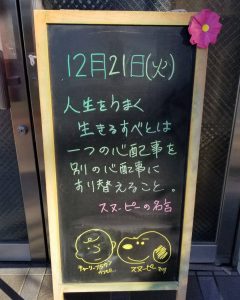 12月21日(火)
人生をうまく
生きるすべとは
一つの心配事を
別の心配事に
すり替えること。
スヌーピーの名言
チャーリーブラウン
スヌーピー